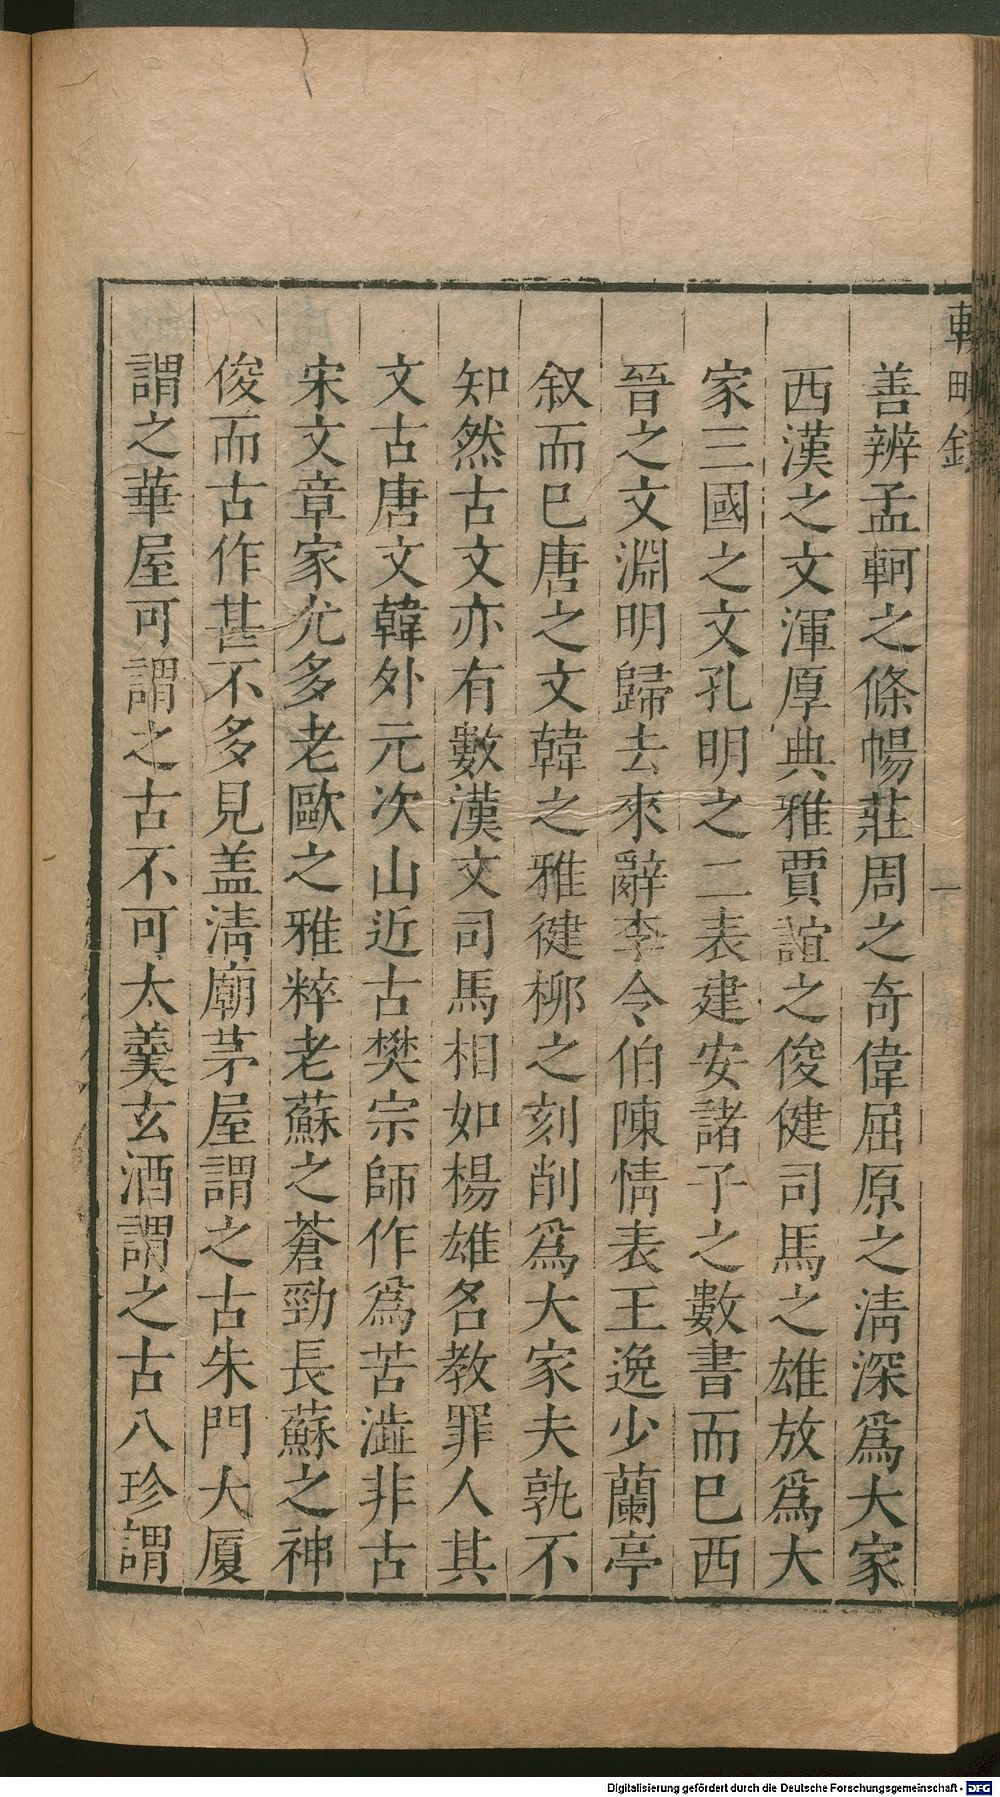 輟畊錄
一
善辨孟軻之條暢莊周之奇偉屈原之清深爲大家
西漢之文渾厚典雅賈誼之俊健司馬之雄放爲大
家三國之文孔明之二表建安諸子之數書而已西
晉之文淵明歸去來辭李令伯陳情表王逸少蘭亭
叙而已唐之文韓之雅健柳之刻削爲大家夫孰不
知然古文亦有數漢文司馬相如楊雄名教罪人其
文古唐文韓外元次山近古樊宗師作爲苦澁非古
宋文章家尤多老歐之雅粹老蘇之蒼勁長蘇之神
俊而古作甚不多見盖清廟茅屋謂之古朱門大厦
謂之華屋可謂之古不可太羹玄酒謂之古八珍謂
Digitalisierung gefördert durch die Deutsche Forschungsgemeinschaft - DFG